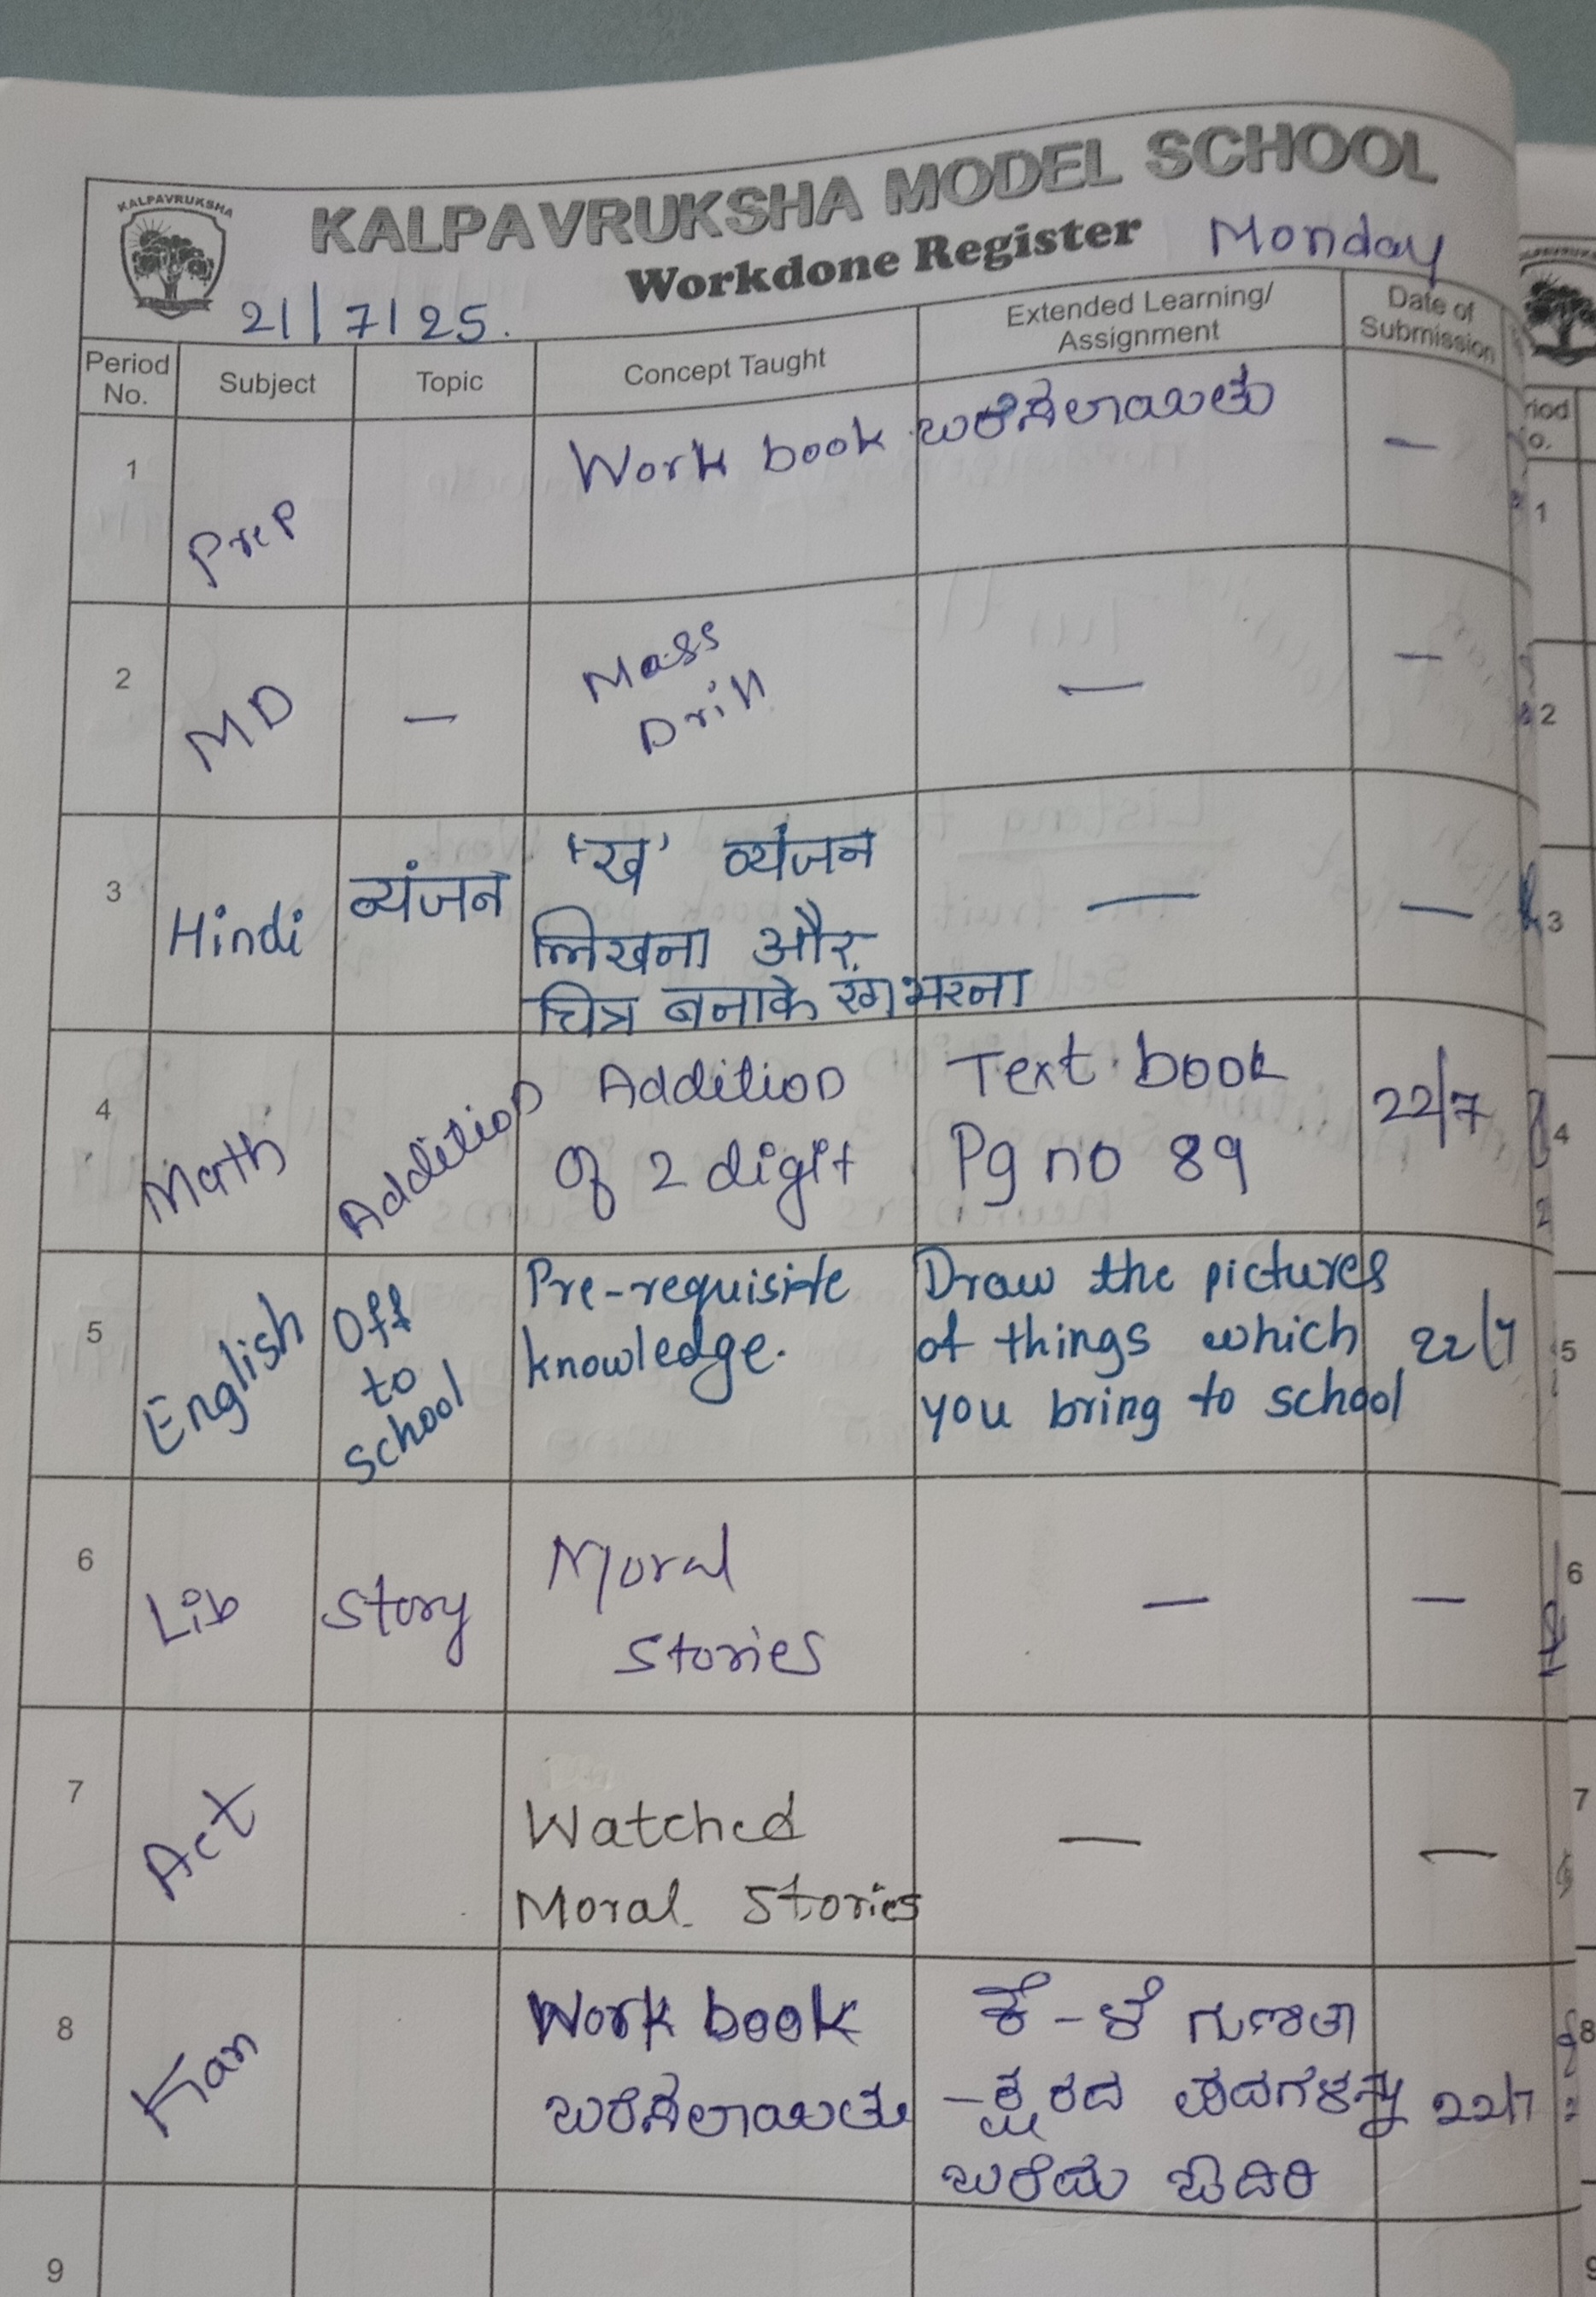 KALPAVRUKSHA
KALPAVRUKSHA MODEL SCHOOL
Workdone Register Monday
21/7/25.
Period No. Subject Topic Concept Taught Extended Learning/ Assignment Date of Submission
1 Prep Work book ಬರೆಸಲಾಯಿತು —
2 MD — Mass Drill — —
3 Hindi व्यंजन 'ख' व्यंजन — —
लिखना और
चित्र बनाके रंग भरना
4 Math Addition Addition Text book 22/7
of 2 digit Pg no 89
5 English Off to school Pre-requisite Draw the pictures 22/7
knowledge. of things which
you bring to school
6 Lib Story Moral — —
Stories
7 Act Watched — —
Moral Stories
8 Kan Work book ಕೆ - ಳೆ ಗುಣಿತಾ
ಬರೆಸಲಾಯಿತು -ಕ್ಷರದ ಪದಗಳನ್ನು 22/7
ಬರೆದು ಓದಿರಿ
9
1
2
3
4
5
6
7
8